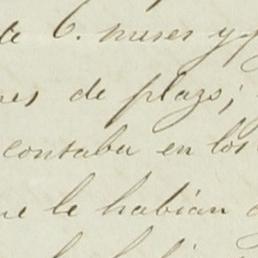 de 6. meses y
nes de plazo;
contaba en los
ue le habian